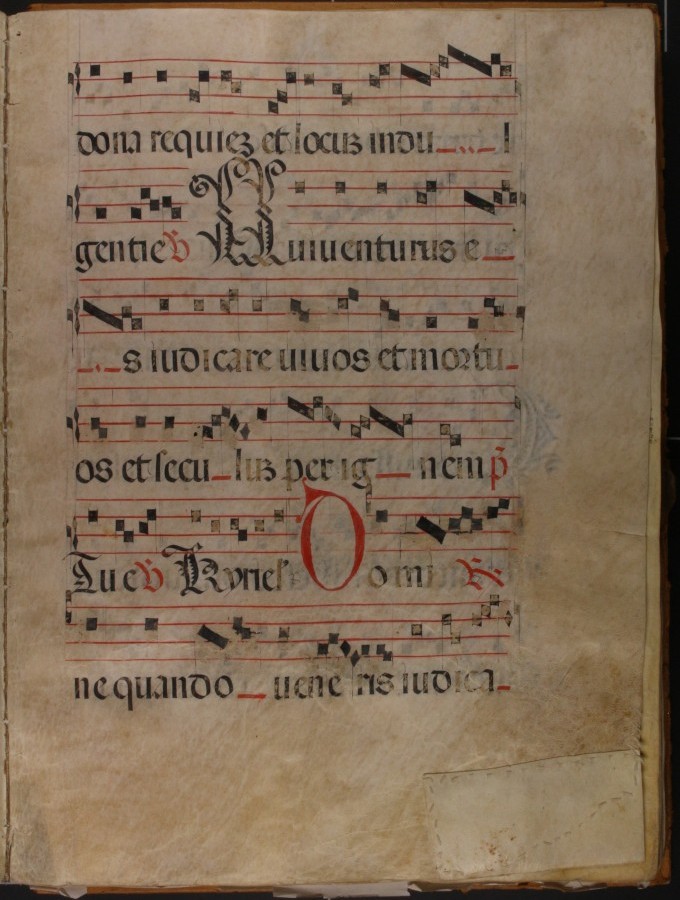 dona requiez et locuz indu l
gentie ℣ Qui uenturus e
s iudicare uiuos et mortu
os et secu luz per ig nem p̄
Tu e ℣ Kyriel Domi ℟
ne quando uene ris iudica